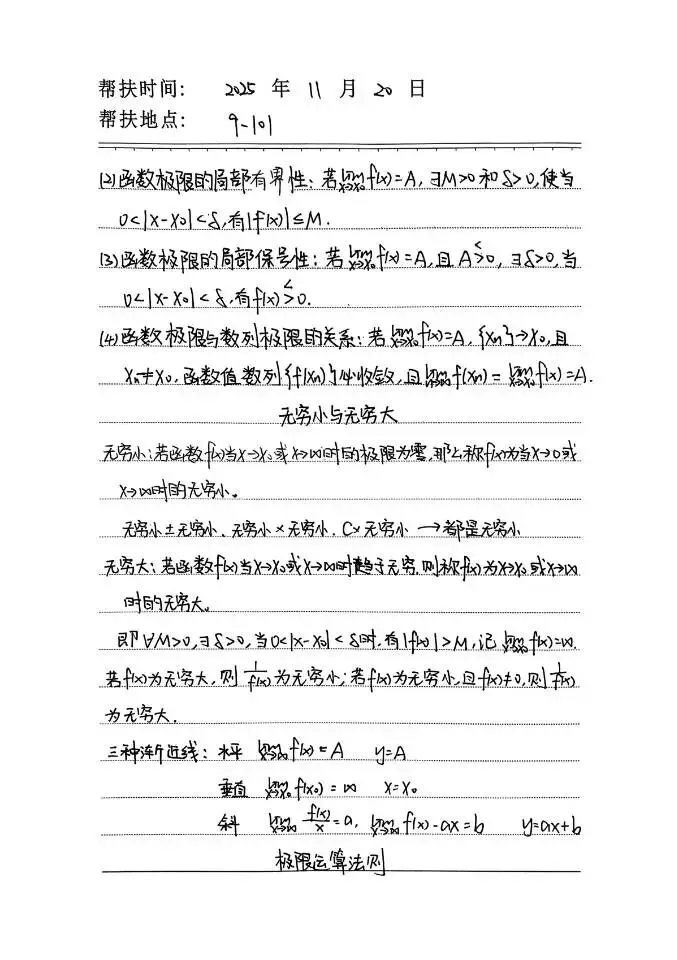 帮扶时间: 2025 年 11 月 20 日
帮扶地点: 9-101
(2)函数极限的局部有界性:若lim x→x₀ f(x)=A,∃M>0和δ>0,使当
0<|x-x₀|<δ,有|f(x)|≤M.
(3)函数极限的局部保号性:若lim x→x₀ f(x)=A,且A>(<)0,∃δ>0,当
0<|x-x₀|<δ,有f(x)>(<)0.
(4)函数极限与数列极限的关系:若lim x→x₀ f(x)=A,{xₙ}→x₀,且
xₙ≠x₀,函数值数列{f(xₙ)}必收敛,且lim n→∞ f(xₙ)=lim x→x₀ f(x)=A.
无穷小与无穷大
无穷小:若函数f(x)当x→x₀或x→∞时的极限为零,那么称f(x)为当x→0或
x→∞时的无穷小。
无穷小±无穷小、无穷小×无穷小、C×无穷小→都是无穷小
无穷大:若函数f(x)当x→x₀或x→∞时趋于无穷,则称f(x)为x→x₀或x→∞
时的无穷大。
即∀M>0,∃δ>0,当0<|x-x₀|<δ时,有|f(x)|>M,记lim x→x₀ f(x)=∞.
若f(x)为无穷大,则1/f(x)为无穷小;若f(x)为无穷小,且f(x)≠0,则1/f(x)
为无穷大.
三种渐近线:水平 lim x→∞ f(x)=A y=A
垂直 lim x→x₀ f(x₀)=∞ x=x₀
斜 lim x→∞ f(x)/x=a, lim x→∞ f(x)-ax=b y=ax+b
极限运算法则